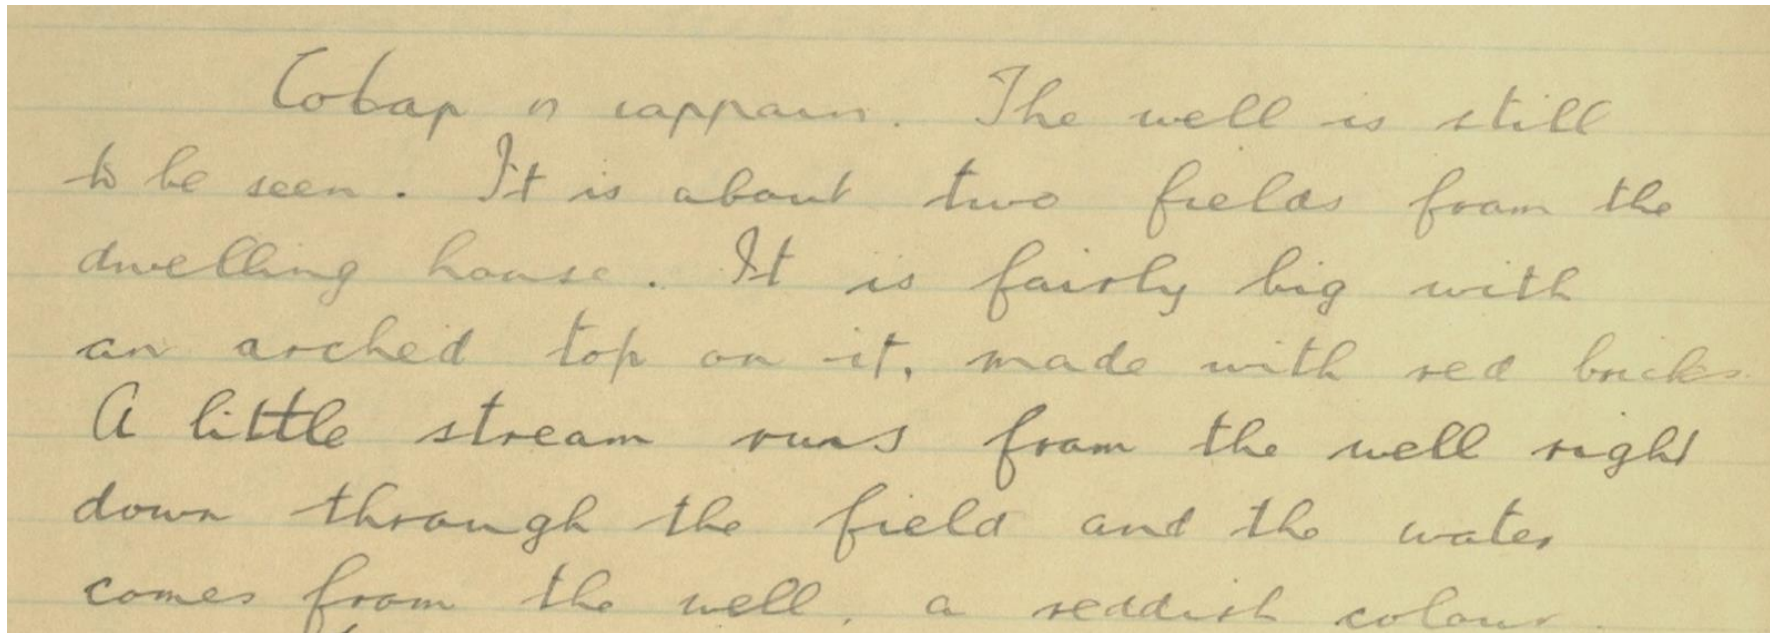 Tobar n iarrain. The well is still
to be seen. It is about two fields from the
dwelling house. It is fairly big with
an arched top on it, made with red bricks
A little stream runs from the well right
down through the field and the water
comes from the well, a reddish colour.